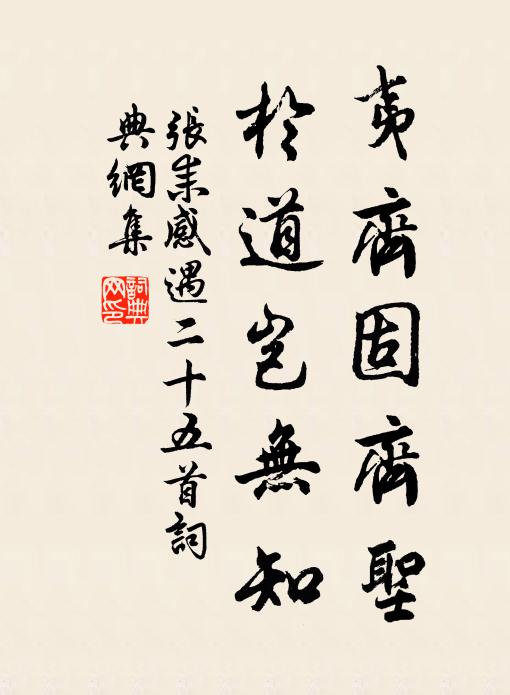 夷齊固齊聖
於道豈無知
張耒感遇二十五首詞
典網集
詞典網印